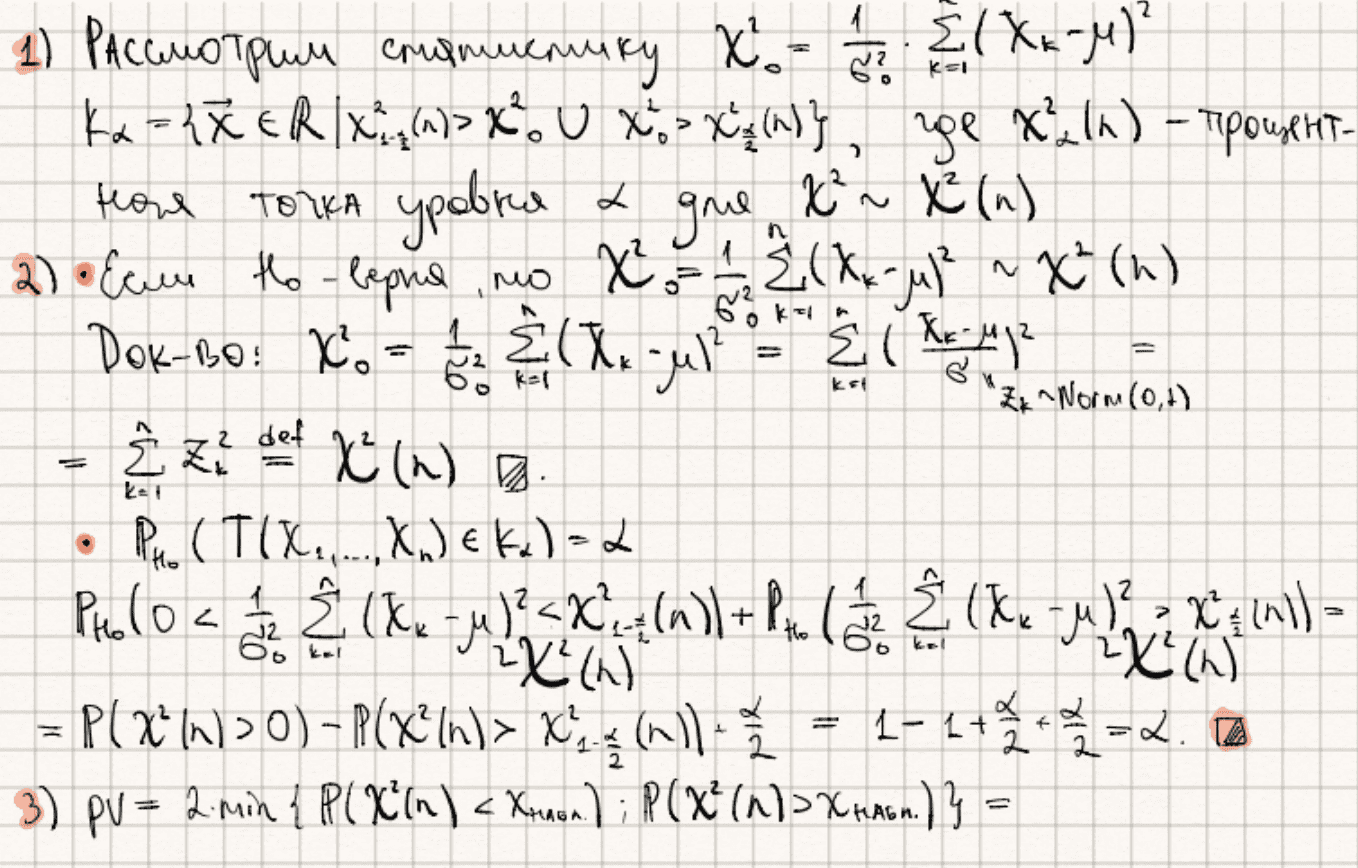 1) Рассмотрим статистику χ²₀ = 1/σ²₀ · Σ_{k=1} (X_k - μ)²
K_α = {x⃗ ∈ ℝ | χ²_{1-α/2}(n) > χ²₀ ∪ χ²₀ > χ²_{α/2}(n)}, где χ²_α(n) - процент-
ная точка уровня α для χ² ~ χ²(n)
2) • Если H₀ - верна, то χ²₀ = 1/σ²₀ Σ_{k=1}^{n} (X_k - μ)² ~ χ²(n)
Док-во: χ²₀ = 1/σ²₀ Σ_{k=1}^{n} (X_k - μ)² = Σ_{k=1}^{n} ((X_k - μ)/σ)² =
" Z_k ~ Norm(0,1)
= Σ_{k=1}^{n} Z_k² def= χ²(n) ▨.
• ℙ_{H₀}(T(X₁,...,X_n) ∈ K_α) = α
ℙ_{H₀}(0 < 1/σ²₀ Σ_{k=1}^{n} (X_k - μ)² < χ²_{1-α/2}(n)) + ℙ_{H₀}(1/σ²₀ Σ_{k=1}^{n} (X_k - μ)² > χ²_{α/2}(n)) =
~χ²(n) ~χ²(n)
= ℙ(χ²(n) > 0) - ℙ(χ²(n) > χ²_{1-α/2}(n)) + α/2 = 1 - 1 + α/2 + α/2 = α. ▨
3) PV = 2·min{ℙ(χ²(n) < χ_набл.); ℙ(χ²(n) > χ_набл.)} =